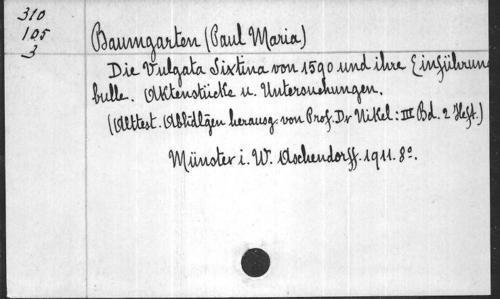 310
105
3
Baumgarten (Paul Maria)
Die Vulgata Sixtina von 1590 und ihre Einführun
bulle. Aktenstücke u. Untersuchungen.
(Alttest. Abhdlgen herausg. von Prof. Dr Nikel: III Bd. 2 Heft.)
Münster i. W. Aschendorff. 1911. 8º.